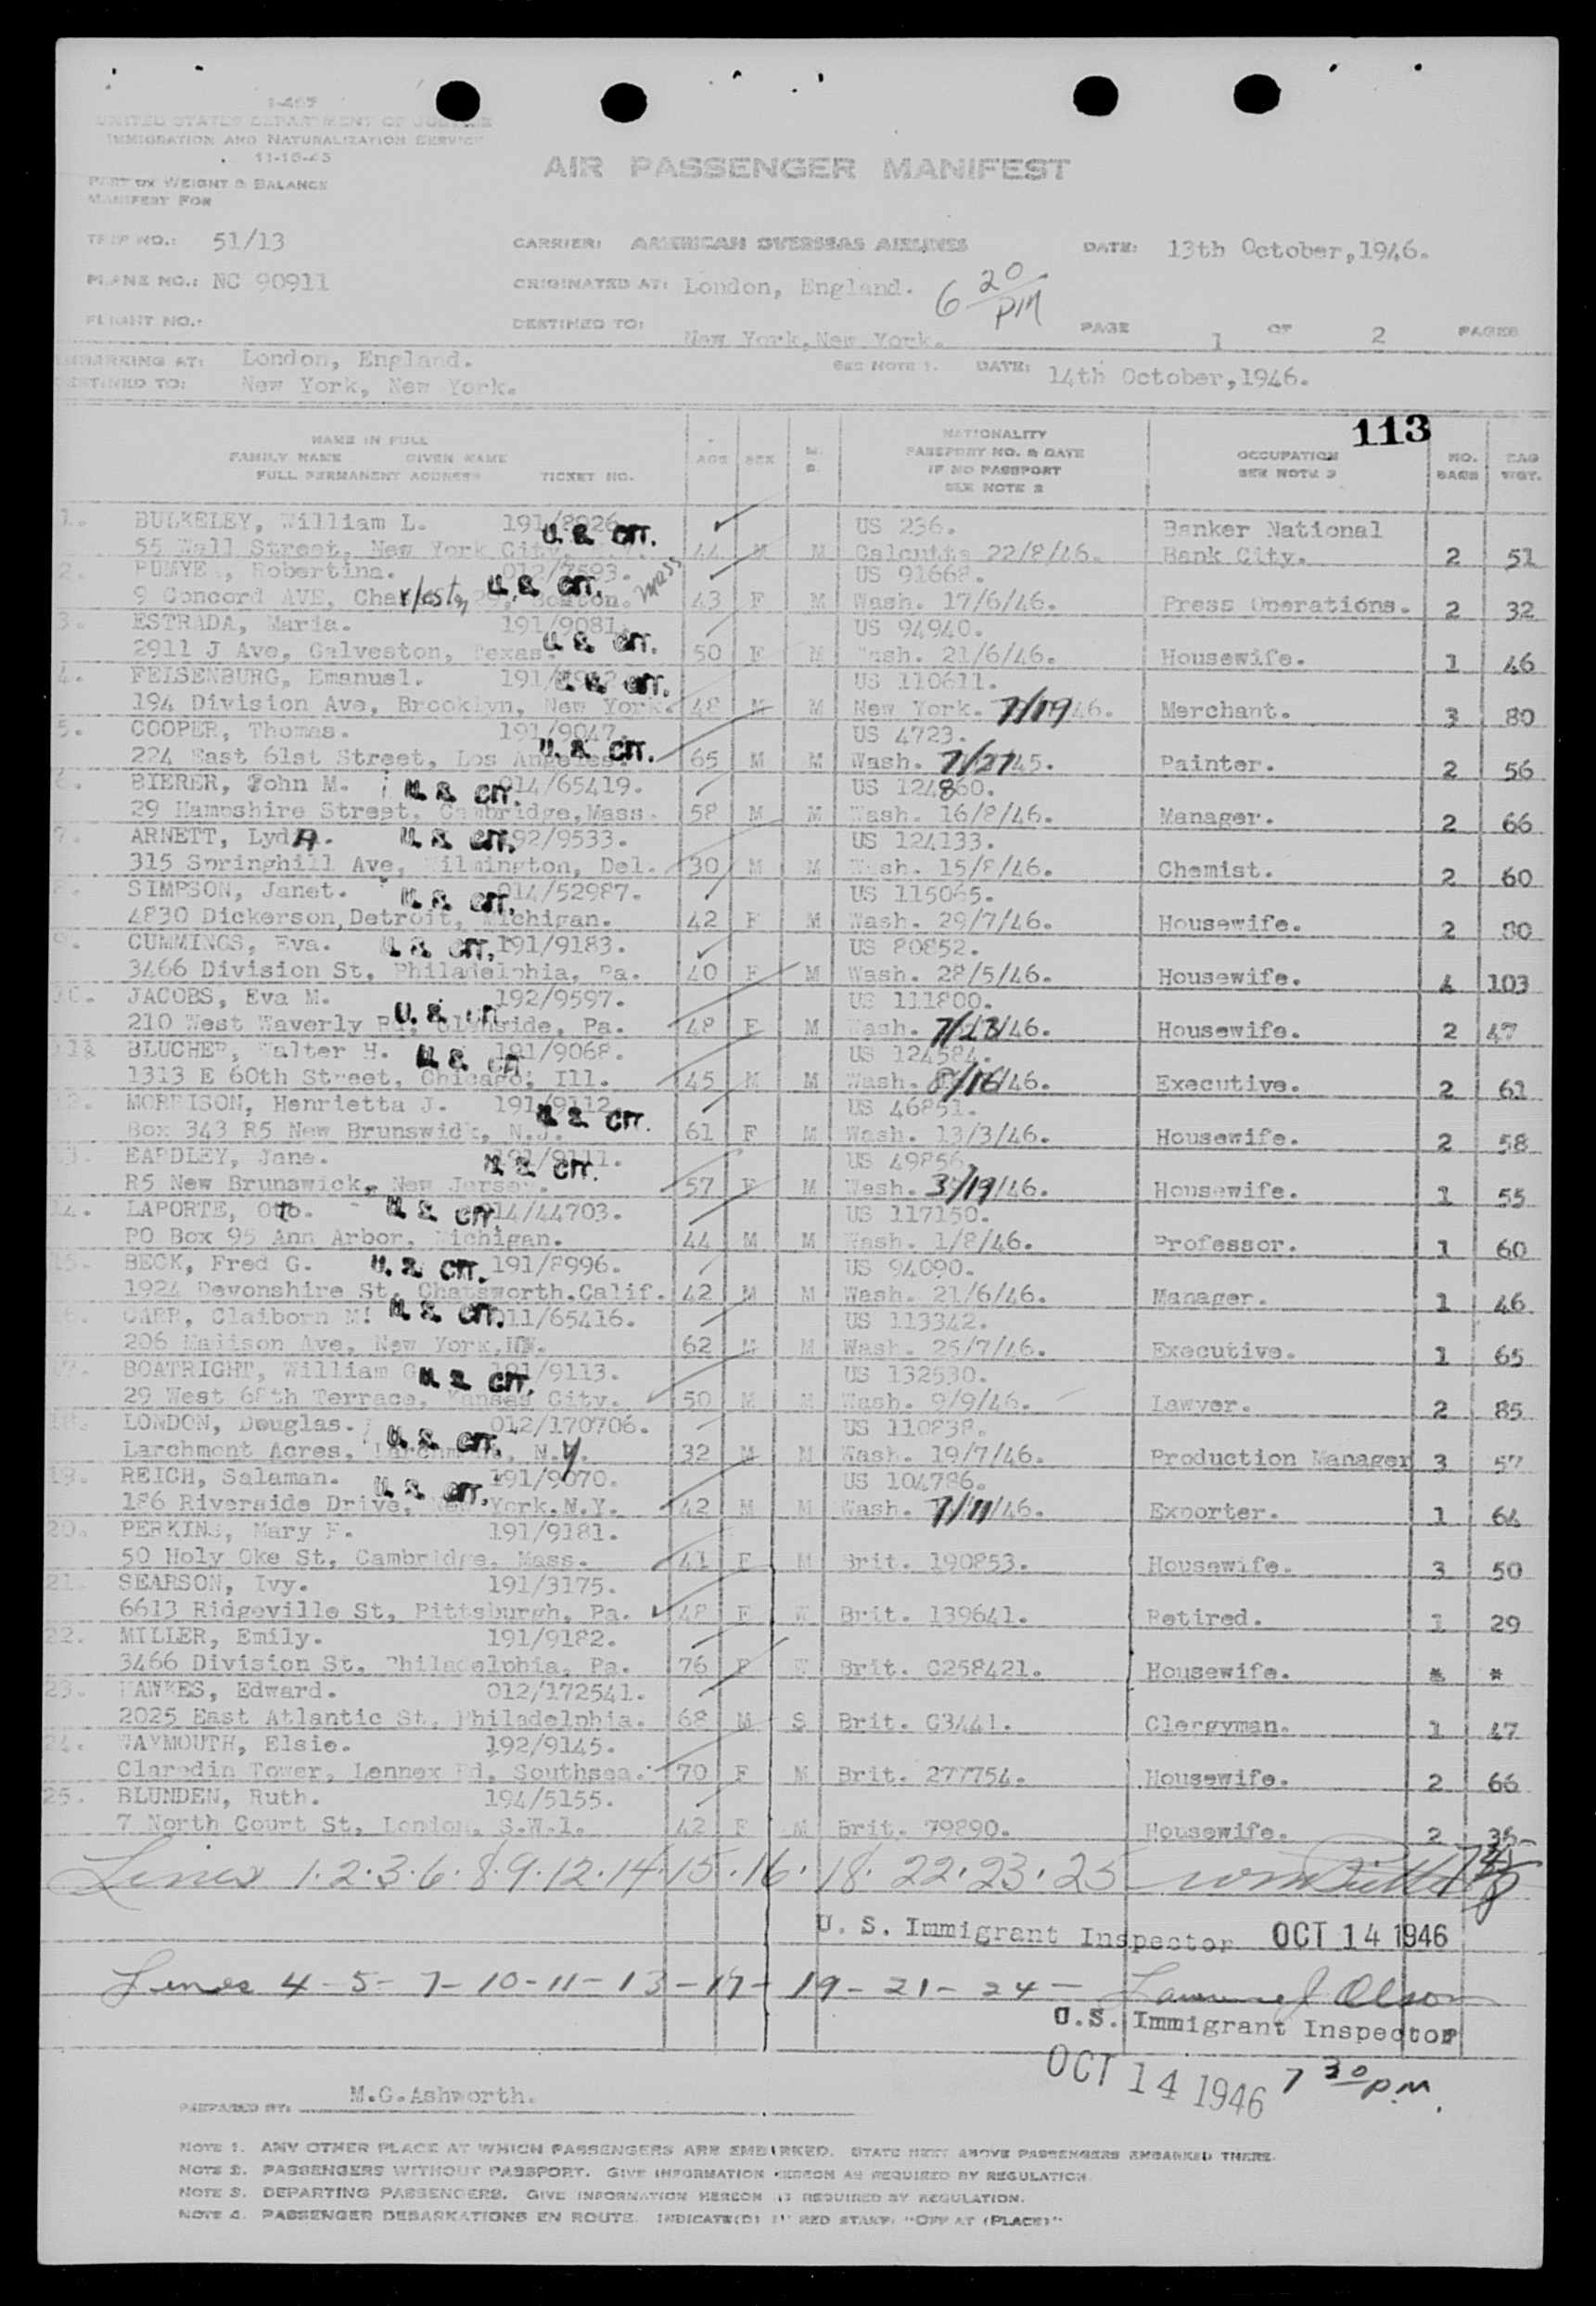 I-467
UNITED STATES DEPARTMENT OF JUSTICE
IMMIGRATION AND NATURALIZATION SERVICE
11-15-45
PART OF WEIGHT & BALANCE
MANIFEST FOR
AIR PASSENGER MANIFEST
TRIP NO.: 51/13 CARRIER: AMERICAN OVERSEAS AIRLINES DATE: 13th October,1946.
PLANE NO.: NC 90911 ORIGINATED AT: London, England. 6 20 PM
FLIGHT NO.: DESTINED TO: New York,New York. PAGE 1 OF 2 PAGES
EMBARKING AT: London, England. SEE NOTE 1. DATE: 14th October,1946.
DESTINED TO: New York, New York.
113
NAME IN FULL
FAMILY NAME GIVEN NAME
FULL PERMANENT ADDRESS TICKET NO. AGE SEX M. S. NATIONALITY PASSPORT NO. & DATE IF NO PASSPORT SEE NOTE 2 OCCUPATION SEE NOTE 3 NO. BAGS BAG WGT.
1. BULKELEY, William L. 191/8926 U. S. CIT. US 236. Banker National
55 Wall Street, New York City, N.Y. 44 M M Calcutta 22/8/46. Bank City. 2 51
2. Robertina. 012/7593. U. S. CIT. US 91668.
9 Concord AVE, Boston. Mass 43 F M Wash. 17/6/46. Press Operations. 2 32
3. ESTRADA, Maria. 191/9081. U. S. CIT. US 94940.
2911 J Ave, Galveston, Texas. 50 F M Wash. 21/6/46. Housewife. 1 46
4. FEISENBURG, Emanuel. 191/ U. S. CIT. US 110611.
194 Division Ave, Brooklyn, New York. 48 M M New York. 7/19/46. Merchant. 3 80
5. COOPER, Thomas. 191/9047. U. S. CIT. US 4723.
224 East 61st Street, Los Angeles. 65 M M Wash. 7/27/45. Painter. 2 56
6. BIERER, John M. U. S. CIT. 014/65419. US 124860.
29 Hampshire Street, Cambridge,Mass. 58 M M Wash. 16/8/46. Manager. 2 66
7. ARNETT, LydA. U. S. CIT. 192/9533. US 124133.
315 Springhill Ave, Wilmington, Del. 30 M M Wash. 15/8/46. Chemist. 2 60
8. SIMPSON, Janet. U. S. CIT. 014/52987. US 115065.
4830 Dickerson,Detroit, Michigan. 42 F M Wash. 29/7/46. Housewife. 2 80
9. CUMMINGS, Eva. U. S. CIT. 191/9183. US 80852.
3466 Division St, Philadelphia, Pa. 40 F M Wash. 28/5/46. Housewife. 4 103
10. JACOBS, Eva M. U. S. CIT. 192/9597. US 111800.
210 West Waverly Rd, Glenside, Pa. 48 F M Wash. 7/23/46. Housewife. 2 47
11. BLUCHER, Walter H. U. S. CIT 191/9068. US 124584.
1313 E 60th Street, Chicago, Ill. 45 M M Wash. 8/16/46. Executive. 2 61
12. MORRISON, Henrietta J. 191/9112. U. S. CIT. US 46851.
Box 343 R5 New Brunswick, N.J. 61 F M Wash. 13/3/46. Housewife. 2 58
13. EARDLEY, Jane. 191/9111. U. S. CIT. US 49856.
R5 New Brunswick, New Jersey. 57 F M Wash. 3/19/46. Housewife. 1 55
14. LAPORTE, Otto. U. S. CIT. 014/44703. US 117150.
PO Box 95 Ann Arbor, Michigan. 44 M M Wash. 1/8/46. Professor. 1 60
15. BECK, Fred G. U. S. CIT. 191/8996. US 94090.
1924 Devonshire St, Chatsworth.Calif. 42 M M Wash. 21/6/46. Manager. 1 46
16. CARR, Claiborn M. U. S. CIT. 011/65416. US 113342.
206 Madison Ave, New York,NY. 62 M M Wash. 25/7/46. Executive. 1 65
17. BOATRIGHT, William G U. S. CIT. 191/9113. US 132530.
29 West 68th Terrace, Kansas City. 50 M M Wash. 9/9/46. Lawyer. 2 85
18. LONDON, Douglas. U. S. CIT. 012/170706. US 110838.
Larchmont Acres, Larchmont, N.Y. 32 M M Wash. 19/7/46. Production Manager 3 57
19. REICH, Salaman. U. S. CIT. 191/9070. US 104786.
186 Riverside Drive, New York.N.Y. 42 M M Wash. 7/11/46. Exporter. 1 64
20. PERKINS, Mary F. 191/9181.
50 Holy Oke St, Cambridge, Mass. 41 F M Brit. 190853. Housewife. 3 50
21. SEARSON, Ivy. 191/3175.
6613 Ridgeville St, Pittsburgh, Pa. 48 F W Brit. 139641. Retired. 1 29
22. MILLER, Emily. 191/9182.
3466 Division St, Philadelphia, Pa. 76 F W Brit. C258421. Housewife. * *
23. HAWKES, Edward. 012/172541.
2025 East Atlantic St, Philadelphia. 68 M S Brit. C3441. Clergyman. 1 47
24. WAYMOUTH, Elsie. 192/9145.
Claredin Tower, Lennex Rd, Southsea. 70 F M Brit. 277754. Housewife. 2 66
25. BLUNDEN, Ruth. 194/5155.
7 North Court St, London, S.W.1. 42 F M Brit. 79890. Housewife. 2 36
Lines 1.2.3.6.8.9.12.14.15.16.18.22.23.25
U. S. Immigrant Inspector OCT 14 1946
Lines 4-5-7-10-11-13-17-19-21-24- Lawrence J Olson
U.S. Immigrant Inspector
OCT 14 1946 7 30 PM.
PREPARED BY: M.G.Ashworth.
NOTE 1. ANY OTHER PLACE AT WHICH PASSENGERS ARE EMBARKED. STATE NEXT ABOVE PASSENGERS EMBARKED THERE.
NOTE 2. PASSENGERS WITHOUT PASSPORT. GIVE INFORMATION HEREON AS REQUIRED BY REGULATION.
NOTE 3. DEPARTING PASSENGERS. GIVE INFORMATION HEREON AS REQUIRED BY REGULATION.
NOTE 4. PASSENGER DEBARKATIONS EN ROUTE. INDICATE(D) IN RED STAMP. "OFF AT (PLACE)"